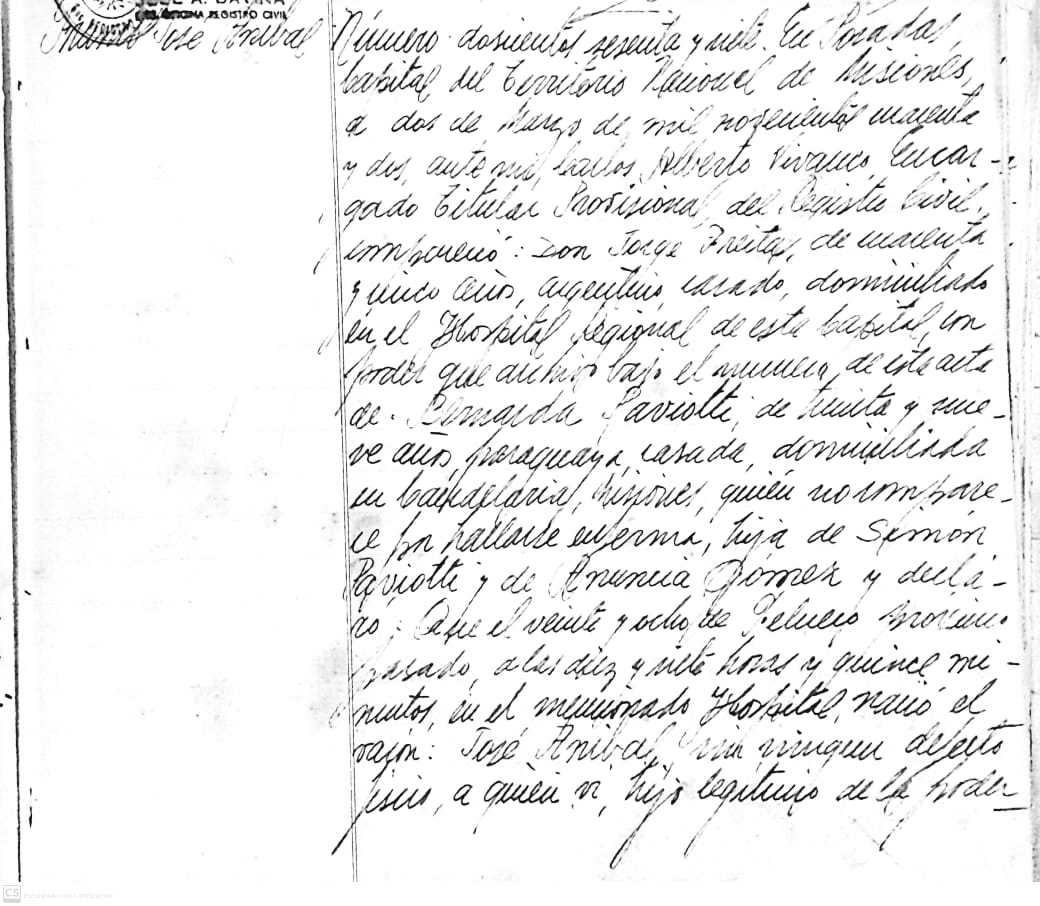 JOSE A. BAVINA
OFICINA REGISTRO CIVIL
José Anibal
Número dosientos sesenta y siete. En Posadas,
Capital del Territorio Nacional de Misiones,
a dos de Marzo de mil novecientos cuarenta
y dos, ante mi, Carlos Alberto Vivanco, Encar-
gado Titular Provisional, del Registro Civil,
compareció: Don Jorge Freitas, de cuarenta
y cinco años, argentino, casado, domiciliado
en el Hospital Regional de esta Capital, con
poder que archivo bajo el numero de esta acta
de Bernarda Paviotti, de treinta y nue-
ve años, paraguaya, casada, domiciliada
en Candelaria, Misiones, quién no compare-
ce por hallarse enferma, hija de Simón
Paviotti y de Anuncia Gómez y decla-
ró: Que el veinte y ocho de Febrero próximo
pasado, a las diez y siete horas y quince mi-
nutos, en el mencionado Hospital, nació el
varón: José Anibal, sin ningun defecto
fisico, a quién vi, hijo legitimo de la poder
CS